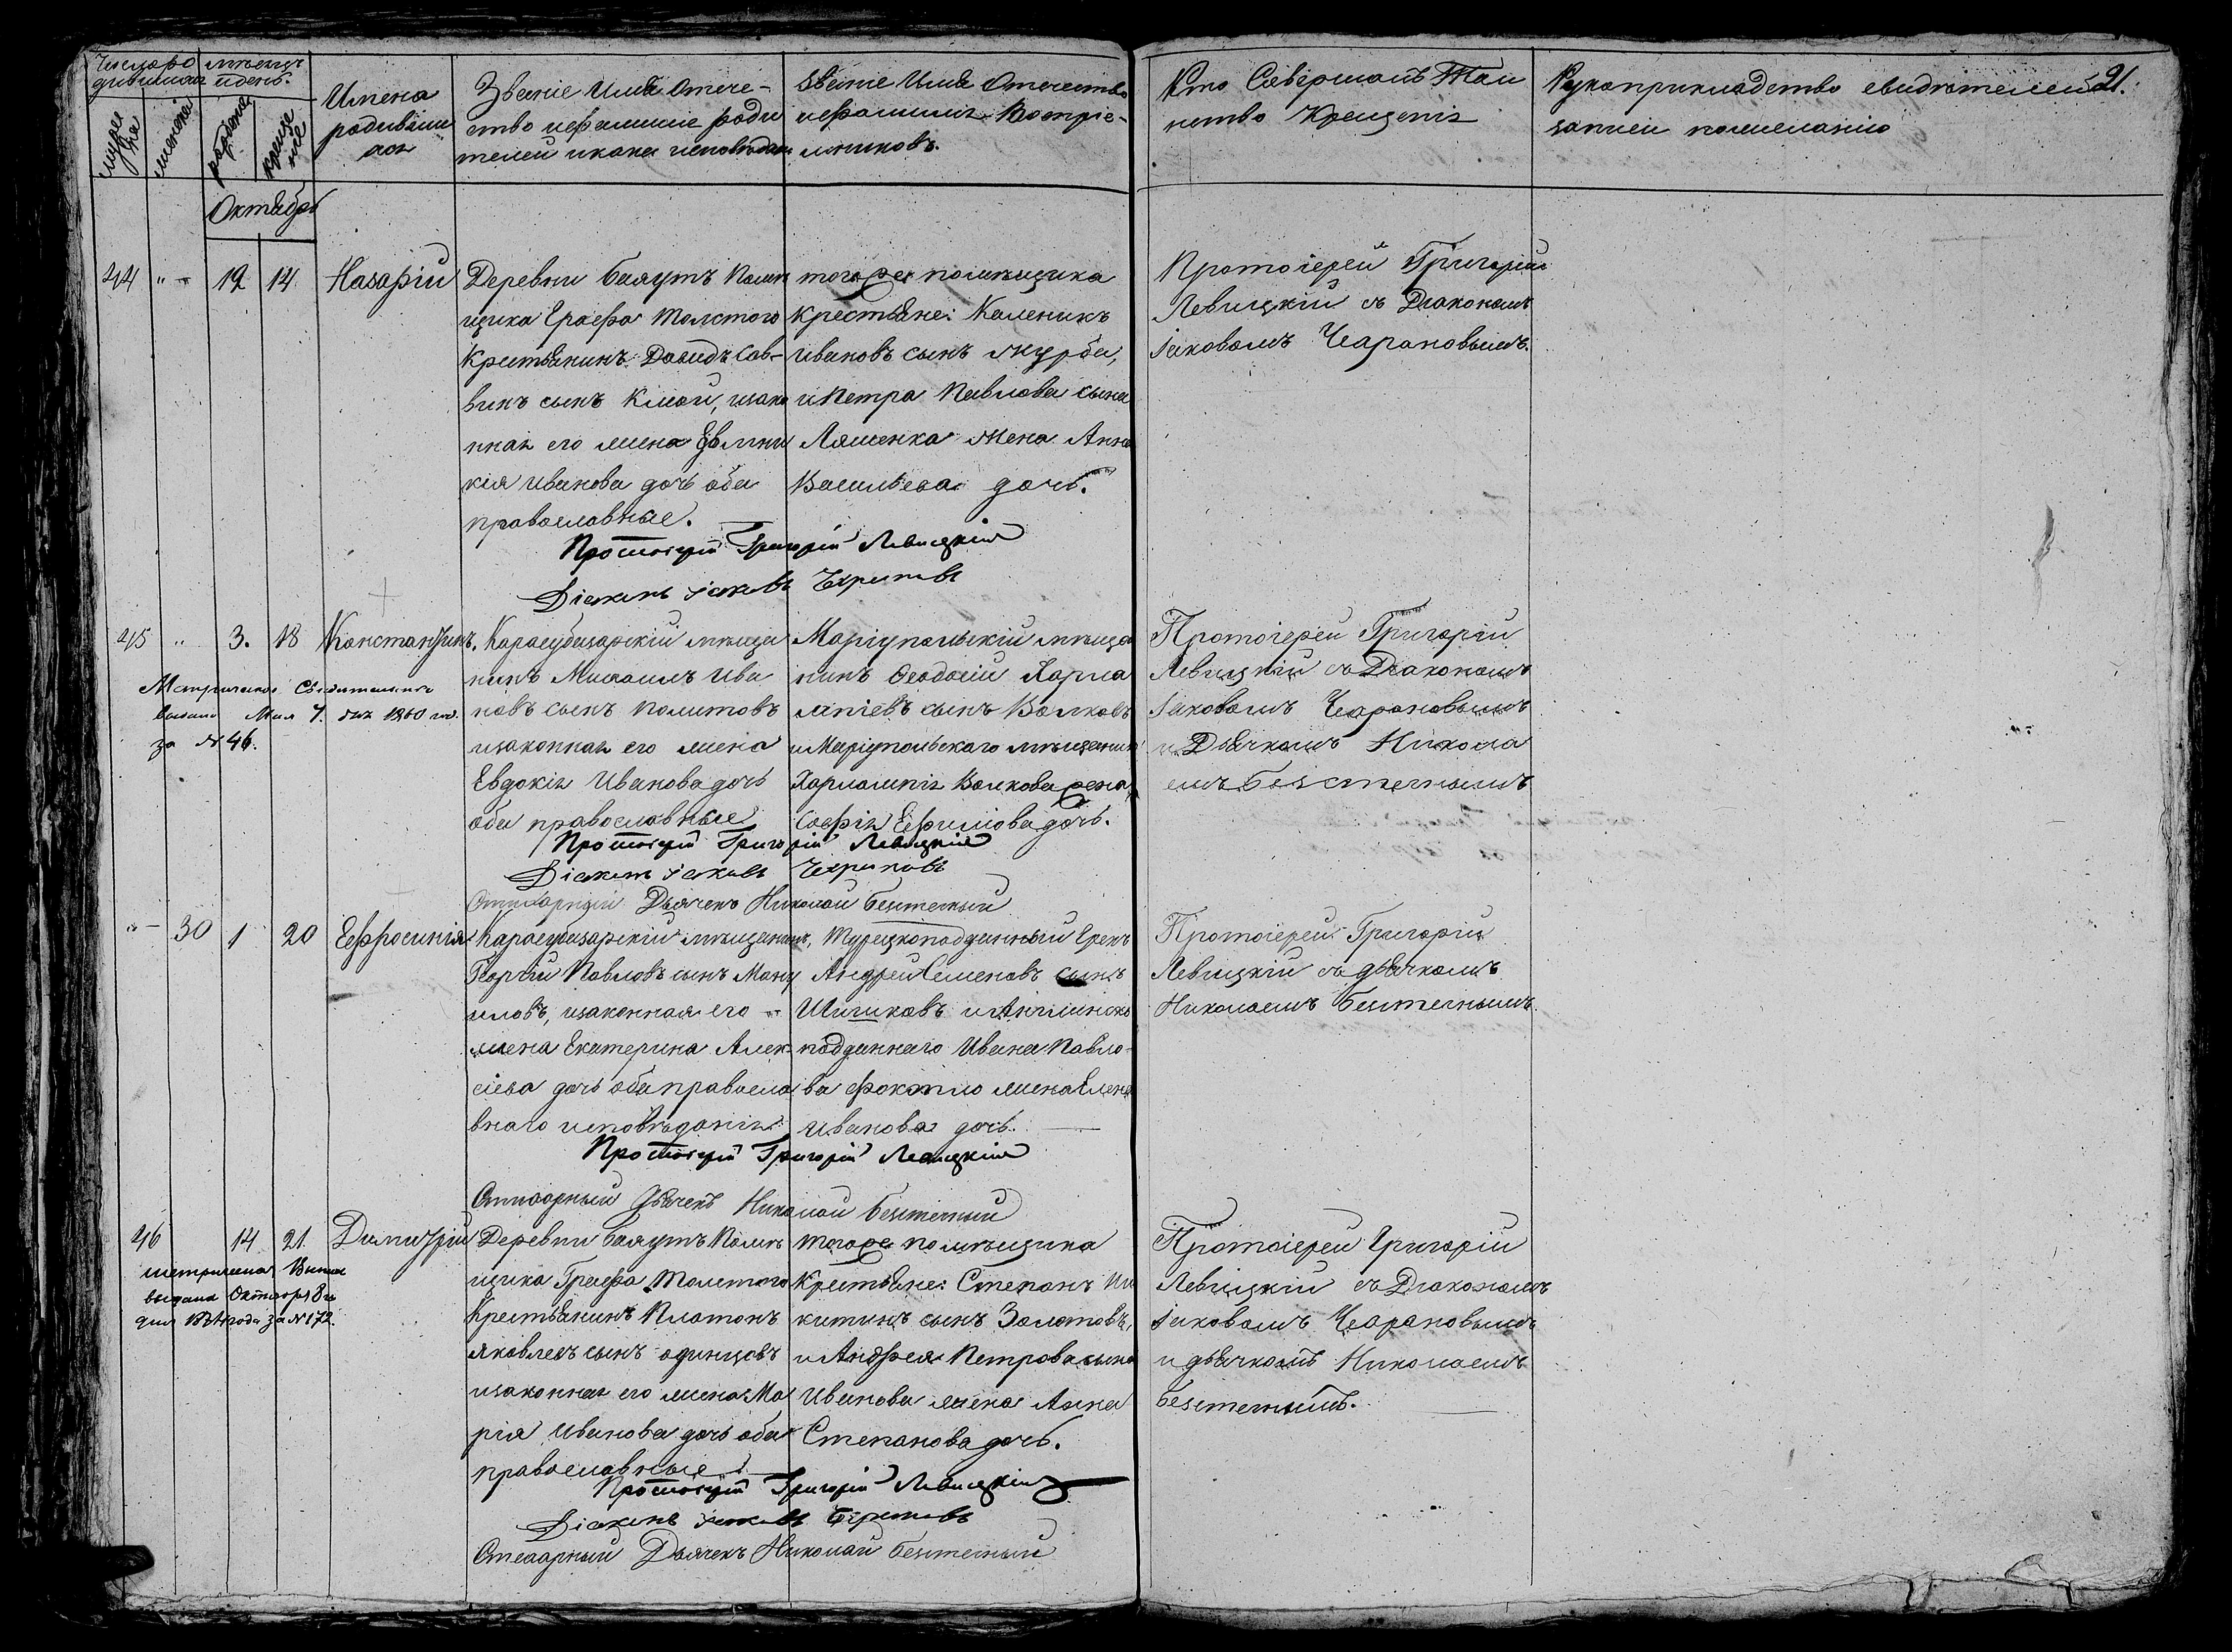 Число ро мѣсяцъ
дившихся и день.
мужеска
женска
рожденія
крещенія
Имена
родивших
ся
Званіе Имя Отече-
ство и фамилие роди
телей и какаго исповѣдан
Званіе Имя Отечество
и фамилия Воспріе-
мниковъ.
Кто Совершалъ Таи
нство Крещенія
Рукоприкладство свидѣтелей
записи по желанію
21.
Октябрь
44 " 12 14 Назарій
Деревни Баяутъ Помѣ
щика Графа Толстого
Крестьянинъ Давидъ Сав-
винъ сынъ Кмой, и зако
нная его жена Евдо
кія Иванова дочь оба
православные.
тогоже помѣщика
Крестьяне: Каленикъ
Ивановъ сынъ Журба,
и Петра Павлова сына
Ляшенка жена Анна
Васильева дочь.
Протоіерей Григорій
Левицкій съ Діакономъ
Іаковомъ Чапановымъ.
Протоіерей Григорій Левицкій
Діаконъ Іаковъ
45 " 3. 18 Константинъ.
Метрическое Свидетельство
выдано Мая 7. дня 1860 год.
за № 46.
Карасубазарскій мѣща
нинъ Михаилъ Ива
новъ сынъ Политовъ
и законная его жена
Евдокія Иванова дочь
оба православные
Маріупольскій мѣща
нинъ Феодосій Харла
мпіевъ сынъ Волковъ
и Маріупольскаго мѣщанина
Харлампія Волкова жена
Софія Ефимова дочь.
Протоіерей Григорій
Левицкій съ Діакономъ
Іаковомъ Чапановымъ
и Дьячкомъ Никола
емъ Безстечнымъ
Протоіерей Григорій Левицкій
Діаконъ Іаковъ
Дьячекъ Николай Безстечный
" 30 1 20 Ефросинія
Карасубазарскій мѣщанинъ,
Георгій Павловъ сынъ Ману
иловъ, и законная его
жена Екатерина Алек
сіева дочь оба правосла
внаго исповѣданія
Турецкоподданный Грекъ
Андрей Семеновъ сынъ
Шишковъ и Англинско
подданнаго Ивана Павло-
ва жена Елена
Иванова дочь.
Протоіерей Григорій
Левицкій съ дьячкомъ
Николаемъ Безстечнымъ.
Протоіерей Григорій Левицкій
Дьячекъ Николай Безстечный
46 14 21. Димитрій
выдана Октября 8го
дня года за № 172.
Деревни Баяутъ Помѣ
щика Графа Толстого
Крестьянинъ Платонъ
Яковлевъ сынъ Одинцовъ
и законная его жена Ма
рія Иванова дочь оба
православные
тогоже помѣщика
Крестьяне: Степанъ Ни
китинъ сынъ Золотовъ,
и Андрея Петрова сына
Иванова жена Анна
Степанова дочь.
Протоіерей Григорій
Левицкій съ Діакономъ
Іаковомъ Чапановымъ
и дьячкомъ Николаемъ
Безстечнымъ.
Протоіерей Григорій Левицкій
Діаконъ Іаковъ
Дьячекъ Николай Безстечный